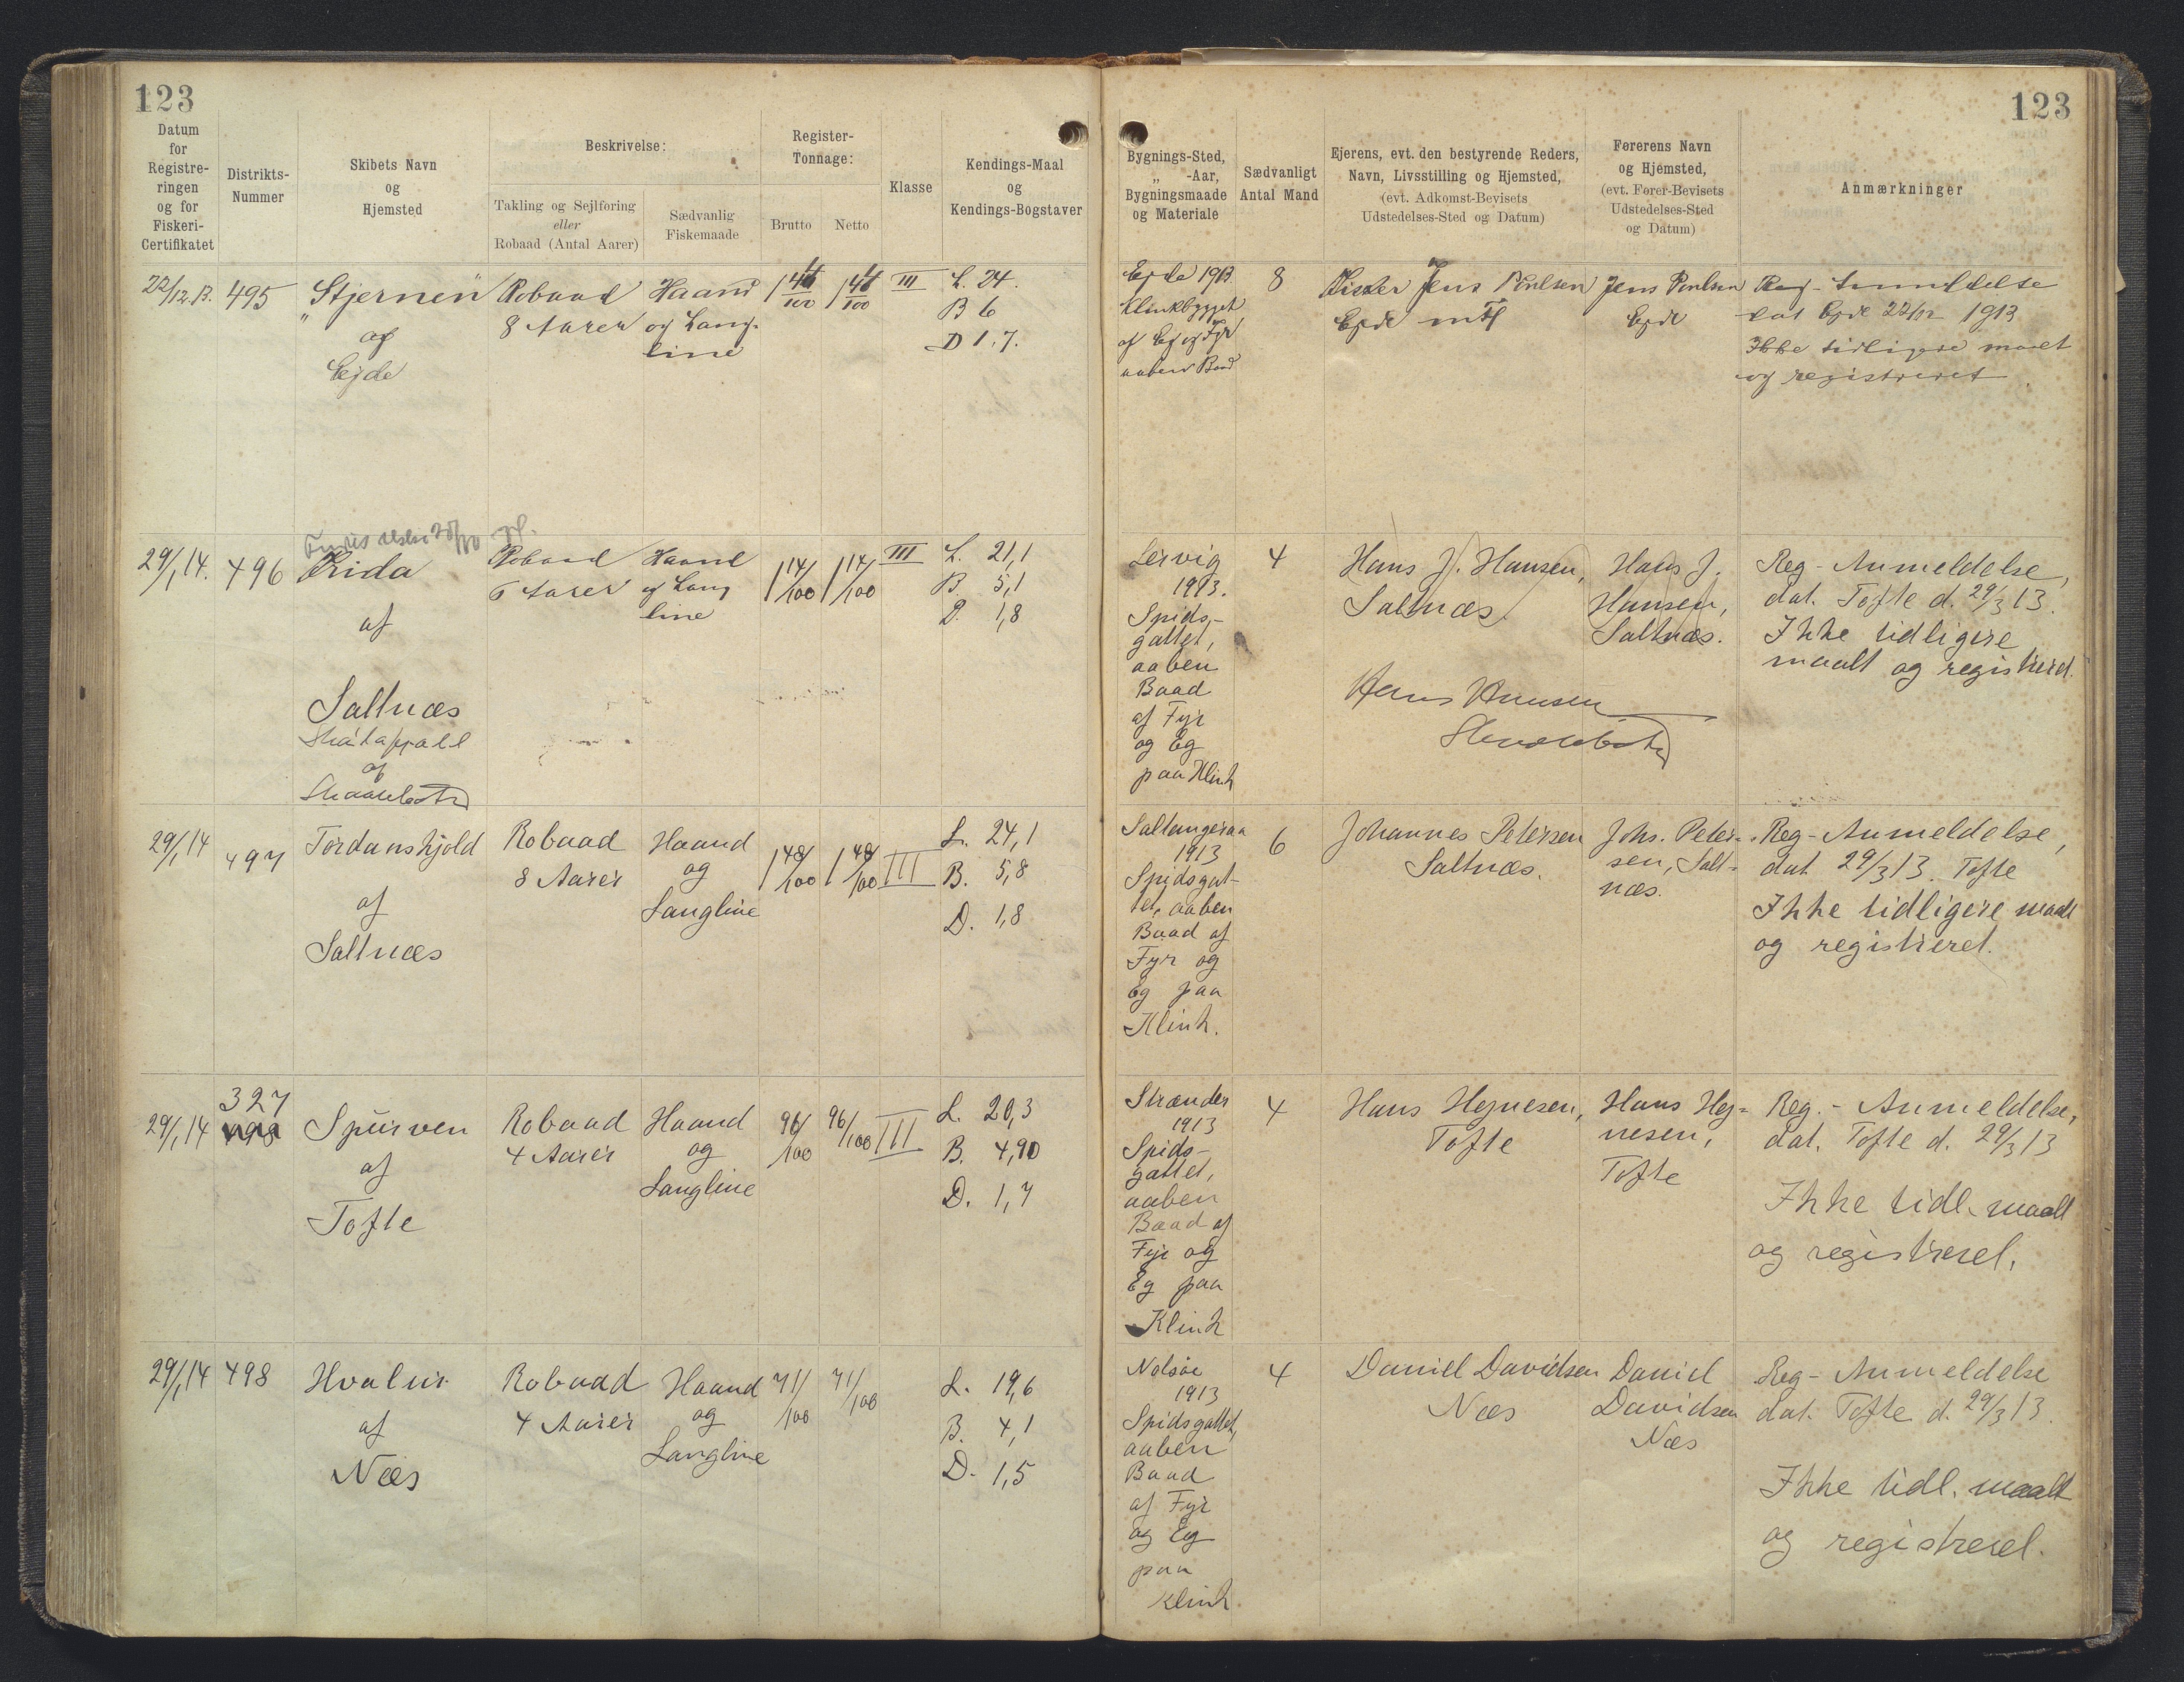 123
123
Datum
for
Registre-
ringen
og for
Fiskeri-
Certifikatet
Distrikts-
Nummer
Skibets Navn
og
Hjemsted
Beskrivelse:
Takling og Sejlføring
eller
Robaad (Antal Aarer)
Sædvanlig
Fiskemaade
Register-
Tonnage:
Brutto
Netto
Klasse
Kendings-Maal
og
Kendings-Bogstaver
Bygnings-Sted,
„ -Aar,
Bygningsmaade
og Materiale
Sædvanligt
Antal Mand
Ejerens, evt. den bestyrende Reders,
Navn, Livsstilling og Hjemsted,
(evt. Adkomst-Bevisets
Udstedelses-Sted og Datum)
Førerens Navn
og Hjemsted,
(evt. Fører-Bevisets
Udstedelses-Sted
og Datum)
Anmærkninger
22/12.13.
495
„Stjernen"
af
Ejde
Robaad
8 Aarer
Haand
og Lang-
line
III
L. 24.
B 6
D 1,7.
Ejde 1913
Klinkbygget
af Eg og Fyr
aaben Baad
8
Jens Poulsen
Ejde
Jens Poulsen
Ejde
Reg-Anmeldelse
dat Ejde 22/12 1913
Ikke tidligere maalt
og registreret
29/1 14.
496
Frida
af
Saltnæs
Robaad
6 Aarer
Haand
og Lang
line
1 14/100
1 14/100
III
L. 21,1
B. 5,1
D. 1,8
Lervig
1913.
Spids-
gattet,
aaben
Baad
af Fyr
og Eg
paa Klink
4
Hans J. Hansen,
Saltnæs.
Hans Hansen
Hans J.
Hansen,
Saltnæs.
Reg-Anmeldelse,
dat. Tofte d. 29/3 13.
Ikke tidligere
maalt og registreret.
29/1 14
497
Tordenskjold
af
Saltnæs
Robaad
8 Aarer
Haand
og
Langline
1 48/100
1 48/100
III
L. 24,1
B. 5,8
D. 1,8
Saltangeraa
1913
Spidsgat-
tet, aaben
Baad af
Fyr og
Eg paa
Klink.
6
Johannes Petersen
Saltnæs.
Johs. Peter-
sen, Salt-
næs.
Reg-Anmeldelse,
dat 29/3 13. Tofte
Ikke tidligere maalt
og registreret.
29/1 14
327
498
Spurven
af
Tofte
Robaad
4 Aarer
Haand
og
Langline
96/100
96/100
III
L. 20,3
B. 4,90
D. 1,7
Strænder
1913
Spids-
gattet,
aaben
Baad af
Fyr og
Eg paa
Klink
4
Hans Hejnesen,
Tofte
Hans Hej-
nesen,
Tofte
Reg.-Anmeldelse,
dat. Tofte d. 29/3 13
Ikke tidl. maalt
og registreret.
29/1 14
498
Hvalur
af
Næs
Robaad
4 Aarer
Haand
og
Langline
71/100
71/100
L. 19,6
B. 4,1
D. 1,5
Nolsøe
1913
Spidsgattet,
aaben
Baad
af Fyr
og Eg
paa
Klink.
4
Daniel Davidsen
Næs
Daniel
Davidsen
Næs
Reg-Anmeldelse
dat. Tofte d. 29/3 13.
Ikke tidl. maalt
og registreret.